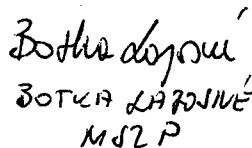 Botka Lajosné
BOTKA LAJOSNÉ
MSZP